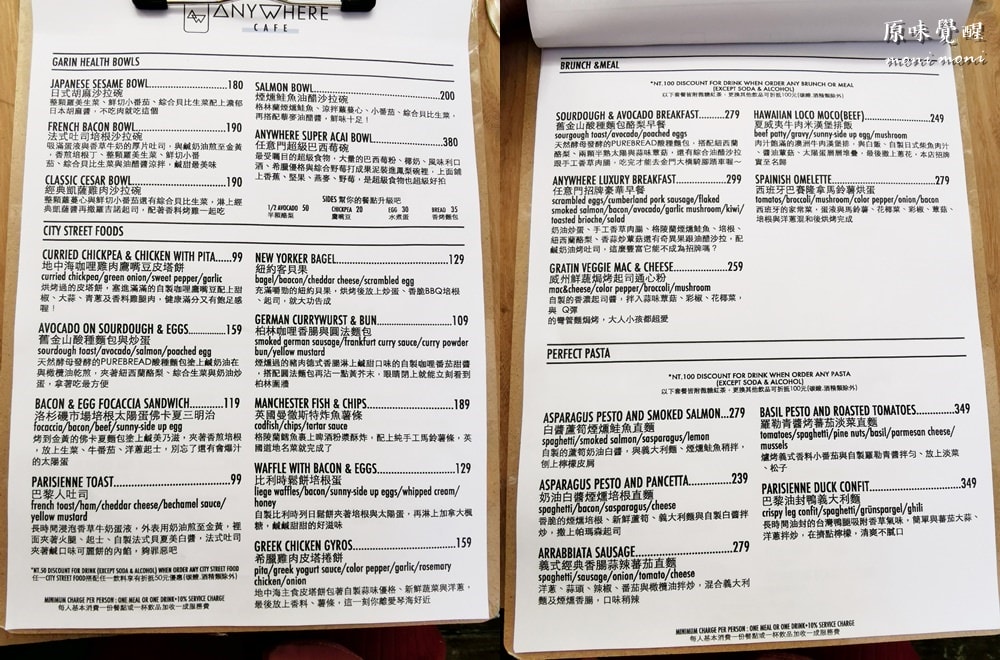 ANYWHERE
CAFE
GARIN HEALTH BOWLS
JAPANESE SESAME BOWL...................180
日式胡麻沙拉碗
整顆蘿美生菜、鮮切小番茄、綜合貝比生菜配上濃郁
日本胡麻醬，不吃肉就吃這個
FRENCH BACON BOWL......................190
法式古巧培根沙拉碗
吸滿蛋液與香草牛奶的厚片吐司，與鹹奶油煎至金黃
，香煎培根丁、整顆蘿美生菜、鮮切小番
茄、綜合貝比生菜與油醋醬涼拌，鹹甜最美味
CLASSIC CESAR BOWL.....................190
經典凱薩雞肉沙拉碗
整顆蘿蔓心與鮮切小番茄還有綜合貝比生菜，淋上經
典凱薩醬再撒羅吉諾起司，配著香料烤雞一起吃
SALMON BOWL............................200
煙燻鮭魚油醋沙拉碗
格林蘭煙燻鮭魚、涼拌蘿蔓心、小番茄、綜合貝比生菜，
再搭配華麥油醋醬，鮮味十足！
ANYWHERE SUPER ACAI BOWL...............380
任意門超級巴西莓碗
最受矚目的超級食物，大量的巴西莓粉、椰奶、風味利口
酒、希臘優格與綜合野莓打成果泥裝進鳳梨碗裡，上面鋪
上香蕉、堅果、燕麥、野莓，是超級食物也超級好拍
SIDES 幫你的餐點升級吧
1/2 AVOCADO 50 CHICKPEA 20 EGG 30 BREAD 35
半顆酪梨 鷹嘴豆 水煮蛋 香烤麵包
CITY STREET FOODS
CURRIED CHICKPEA & CHICKEN WITH PITA......99
地中海咖哩雞肉鷹嘴豆皮塔餅
curried chickpea/green onion/sweet pepper/garlic
烘烤過的皮塔餅，塞進滿滿的自製咖哩鷹嘴豆配上甜
椒、大蒜、青蔥及香料雞腿肉，健康滿分又有飽足感
喔！
AVOCADO ON SOURDOUGH & EGGS.............159
舊金山酸種麵包與炒蛋
sourdough toast/avocado/salmon/poached egg
天然酵母發酵的PUREBREAD酸種麵包塗上鹹奶油在
與橄欖油乾煎，夾著紐西蘭酪梨、綜合生菜與奶油炒
蛋，拿著吃最方便
BACON & EGG FOCACCIA SANDWICH..........119
洛杉磯市場培根太陽蛋佛卡夏三明治
focaccia/bacon/beef/sunny-side up egg
烤到金黃的佛卡夏麵包塗上鹹美乃滋，夾著香煎培根
，放上生菜、牛番茄、洋蔥起士，別忘了還有會爆汁
的太陽蛋
PARISIENNE TOAST........................99
巴黎人吐司
french toast/ham/cheddar cheese/bechamel sauce/
yellow mustard
長時間浸泡香草牛奶蛋液，外表用奶油煎至金黃，裡
面夾著火腿、起士、自製法式貝夏美白醬，法式吐司
夾著鹹口味可麗餅的內餡，夠罪惡吧
NEW YORKER BAGEL........................129
紐約客貝果
bagel/beacon/cheddar cheese/scrambled egg
充滿嚼勁的紐約貝果，烘烤後放上炒蛋、香脆BBQ培根
、起司，就大功告成
GERMAN CURRYWURST & BUN.................109
柏林咖哩香腸與圓法麵包
smoked german sausage/frankfurt curry sauce/curry powder
bun/yellow mustard
煙燻過的豬肉德式香腸淋上鹹甜口味的自製咖哩番茄甜醬
，搭配圓法麵包再沾一點黃芥末，眼睛閉上就能立刻看到
柏林圍牆
MANCHESTER FISH & CHIPS.................189
英國曼徹斯特炸魚薯條
codfish/chips/tartar sauce
格陵蘭鱈魚裹上啤酒粉漿酥炸，配上純手工馬鈴薯條，英
國道地名菜就完成了
WAFFLE WITH BACON & EGGS................129
比利時鬆餅培根蛋
liege waffles/bacon/sunny-side up eggs/whipped cream/
honey
自製比利時列日鬆餅夾著培根與太陽蛋，再淋上加拿大楓
糖，鹹鹹甜甜的好滋味
GREEK CHICKEN GYROS.....................159
希臘雞肉皮塔捲餅
pita/greek yogurt sauce/color pepper/garlic/rosemary
chicken/onion
地中海主食皮塔餅包著自製蒜味優格、新鮮蔬菜與洋蔥，
最後放上香料、薯條，這一刻你離愛琴海好近
*NT.50 DISCOUNT FOR DRINK (EXCEPT SODA & ALCOHOL) WHEN ORDER ANY CITY STREET FOOD
任一CITY STREET FOOD搭配任一飲料享有折抵50元優惠(碳酸.酒精類除外)
MINIMUM CHARGE PER PERSON : ONE MEAL OR ONE DRINK+10% SERVICE CHARGE
每人基本消費一份餐點或一杯飲品加收一成服務費
原味覺醒
moni moni
BRUNCH &MEAL
*NT.100 DISCOUNT FOR DRINK WHEN ORDER ANY BRUNCH OR MEAL
(EXCEPT SODA & ALCOHOL)
以下套餐皆附微糖紅茶，更換其他飲品可折抵100元(碳酸.酒精類除外)
SOURDOUGH & AVOCADO BREAKFAST.......279
舊金山酸種麵包酪梨早餐
sourdough toast/avocado/poached eggs
天然酵母發酵的PUREBREAD酸種麵包，搭配紐西蘭
酪梨、兩顆半熟太陽與蒜味蘑菇，還有綜合油醋沙拉
跟手工香草肉腸，吃完才能去金門大橋騎腳踏車喔～
ANYWHERE LUXURY BREAKFAST...........299
任意門招牌豪華早餐
scrambled eggs/cumberland pork sausage/flaked
smoked salmon/bacon/avocado/garlic mushroom/kiwi/
toasted brioche/salad
奶油炒蛋、手工香草肉腸、格陵蘭煙燻鮭魚、培根、
紐西蘭酪梨、香蒜炒蘑菇還有奇異果跟油醋沙拉，配
鹹奶油烤吐司，這麼豐富它能不成為招牌嗎？
GRATIN VEGGIE MAC & CHEESE...........259
威州鮮蔬焗烤起司通心粉
mac&cheese/color pepper/broccoli/mushroom
自製的香濃起司醬，拌入蒜味蘑菇、彩椒、花椰菜，
與 Q彈
的彎管麵焗烤，大人小孩都超愛
HAWAIIAN LOCO MOCO(BEEF)..............249
夏威夷牛肉米漢堡排飯
beef patty/gravy/sunny-side up egg/mushroom
肉汁飽滿的澳洲牛肉漢堡排，與白飯、自製日式柴魚肉汁
、醬油蕈菇、太陽蛋層層堆疊，最後撒上蔥花，本店招牌
實至名歸
SPAINISH OMELETTE....................279
西班牙巴賽隆拿馬鈴薯烘蛋
tomatoes/broccoli/mushroom/color pepper/onion/bacon
西班牙的家常菜，蛋液與馬鈴薯、花椰菜、彩椒、蕈菇、
培根與洋蔥混和後烘烤完成
PERFECT PASTA
*NT.100 DISCOUNT FOR DRINK WHEN ORDER ANY PASTA
(EXCEPT SODA & ALCOHOL)
以下套餐皆附微糖紅茶，更換其他飲品可折抵100元(碳酸.酒精類除外)
ASPARAGUS PESTO AND SMOKED SALMON...279
白醬蘆筍煙燻鮭魚直麵
spaghetti/smoked salmon/sasparagus/lemon
自製的蘆筍奶油白醬，與義大利麵、煙燻鮭魚稍拌，
刨上檸檬皮屑
ASPARAGUS PESTO AND PANCETTA.........239
奶油白醬煙燻培根直麵
spaghetti/bacon/sasparagus/cheese
香脆的煙燻培根、新鮮蘆筍、義大利麵與自製白醬拌
炒，撒上帕瑪森起司
ARRABBIATA SAUSAGE...................279
義式經典香腸蒜辣蕃茄直麵
spaghetti/sausage/onion/tomato/cheese
洋蔥、蒜頭、辣椒、番茄與橄欖油拌炒，混合義大利
麵及煙燻香腸，口味稍辣
BASIL PESTO AND ROASTED TOMATOES......349
羅勒青醬烤蕃茄淡菜直麵
tomatoes/spaghetti/pine nuts/basil/parmesan cheese/
mussels
爐烤義式香料小番茄與自製羅勒青醬拌勻、放上淡菜
、松子
PARISIENNE DUCK CONFIT...............349
巴黎油封鴨義大利麵
crispy leg confit/spaghetti/grünspargel/ghili
長時間油封的台灣鴨腿吸附香草氣味，簡單與蕃茄大蒜、
洋蔥拌炒，在擠點檸檬，清爽不膩口
MINIMUM CHARGE PER PERSON : ONE MEAL OR ONE DRINK+10% SERVICE CHARGE
每人基本消費一份餐點或一杯飲品加收一成服務費